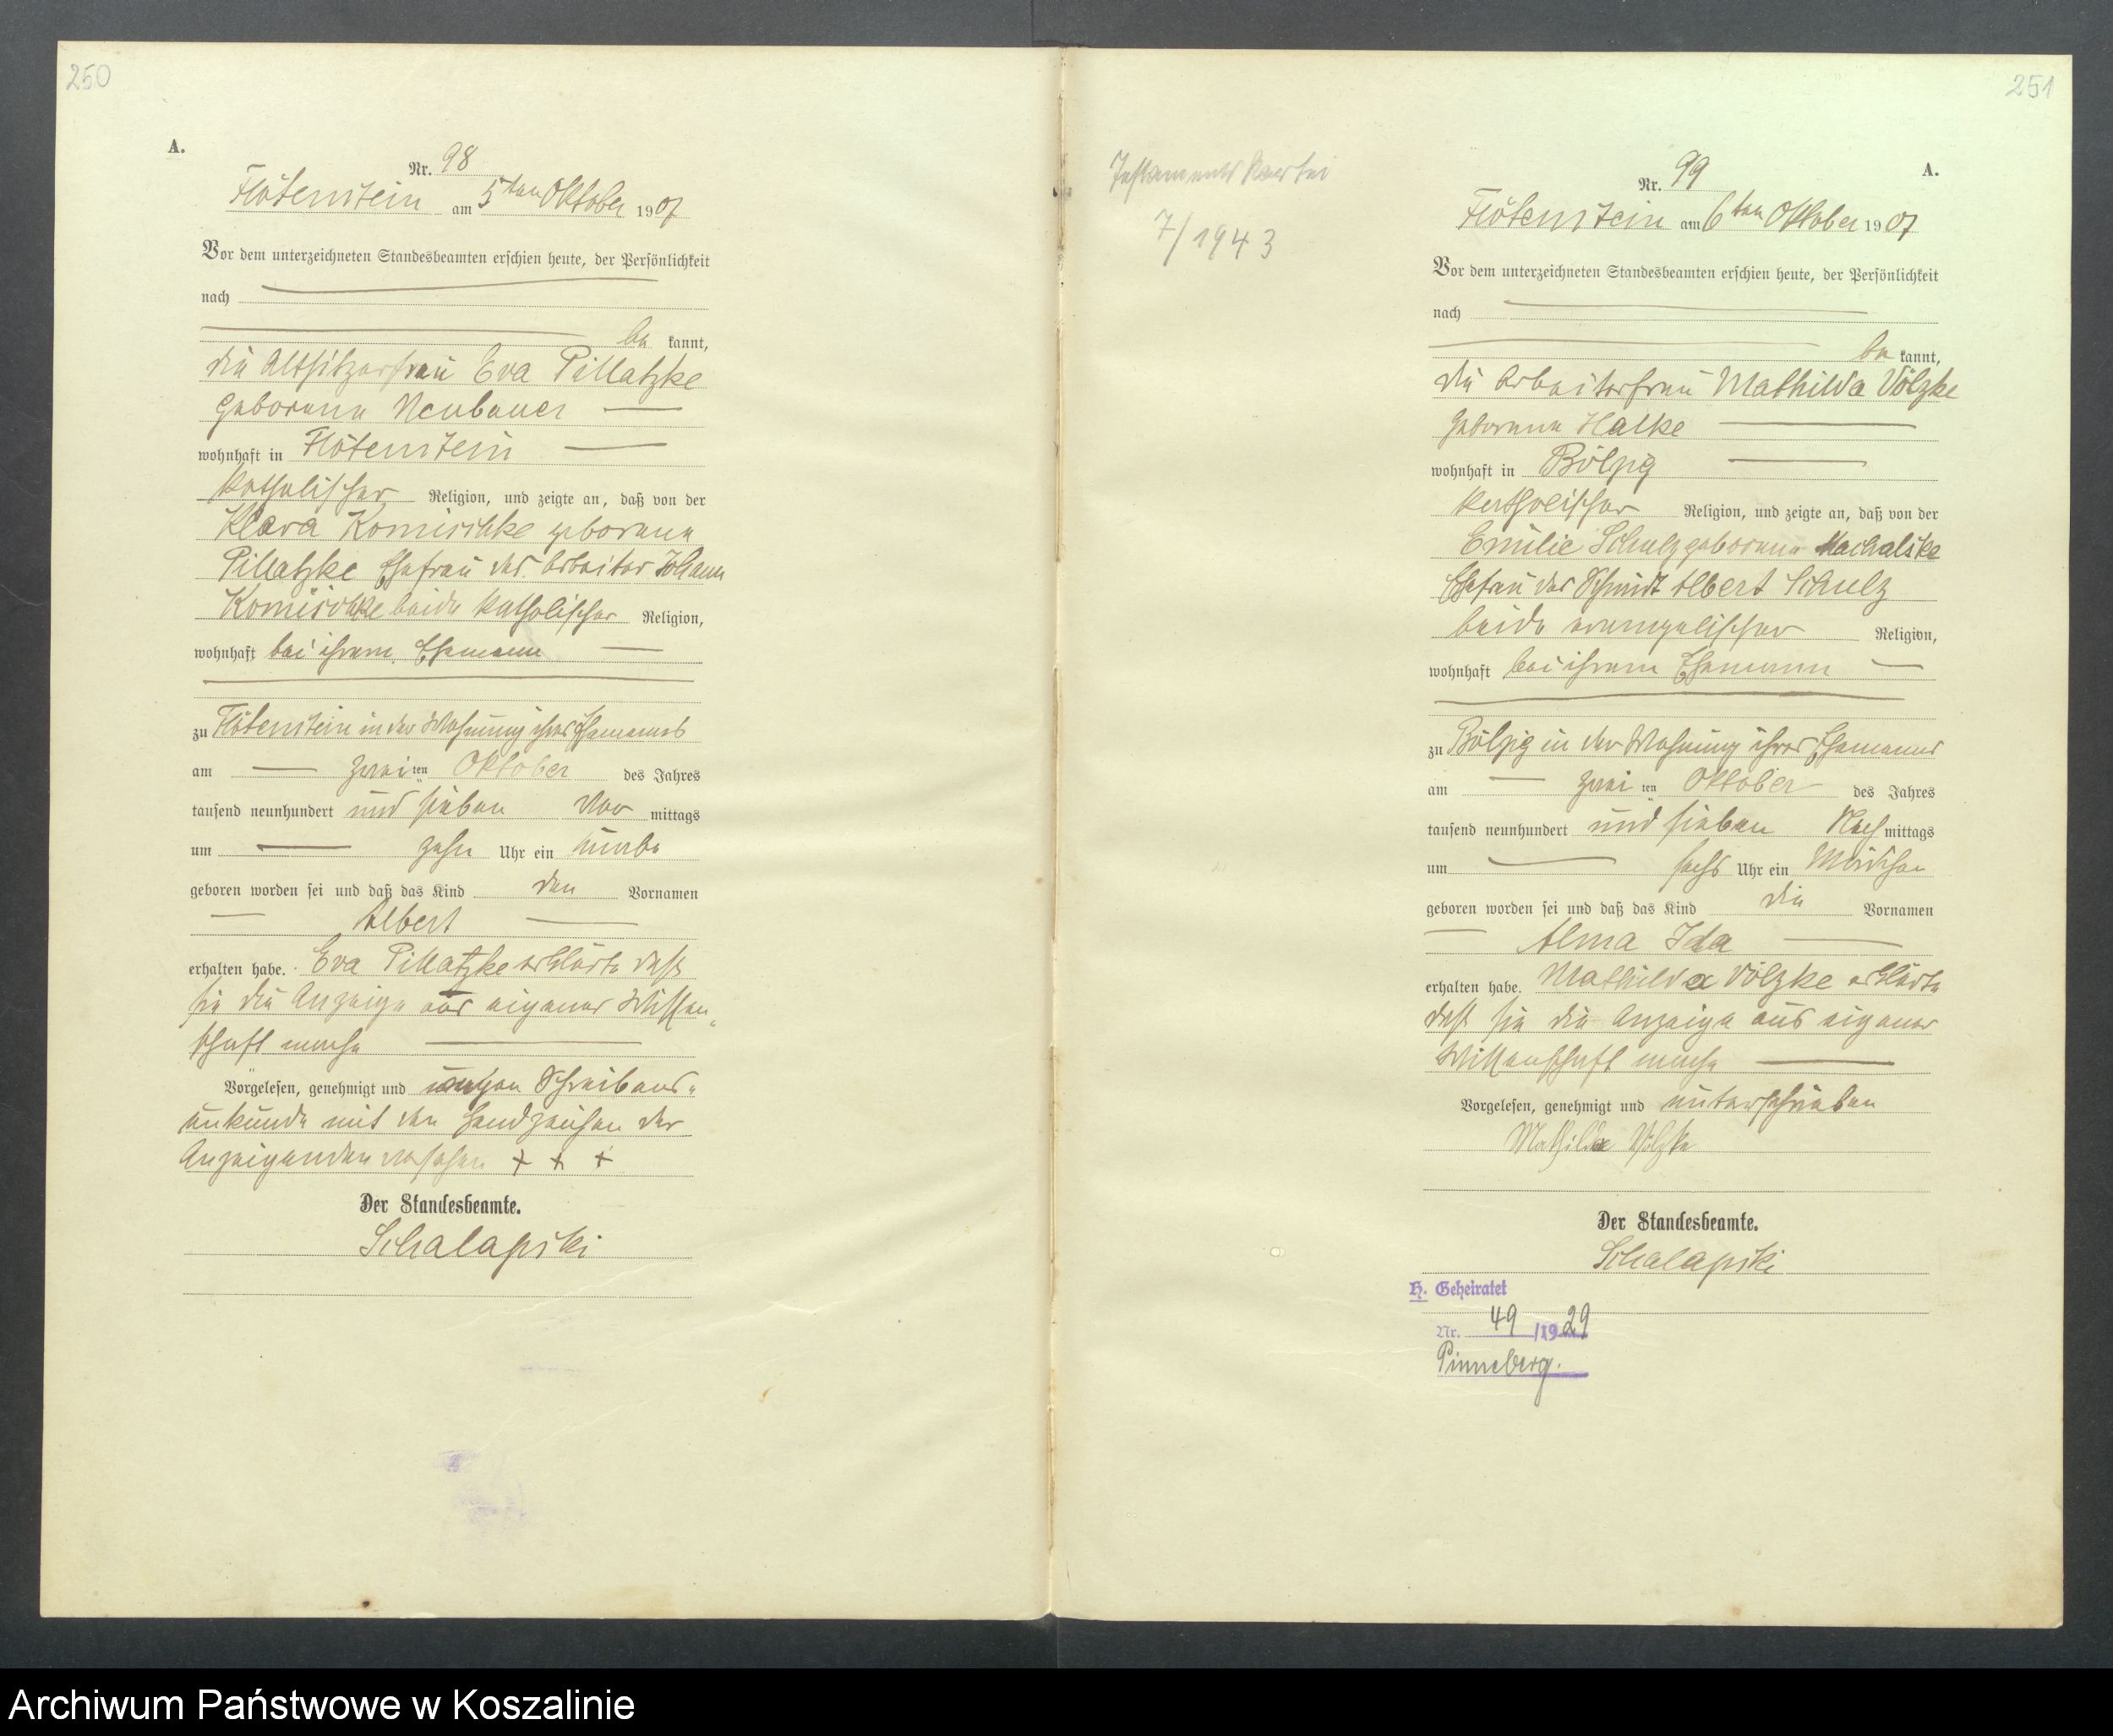 250
A.
Nr. 98
Flötenstein am 5ten Oktober 1907
Vor dem unterzeichneten Standesbeamten erschien heute, der Persönlichkeit
nach
be kannt,
die Altsitzerfrau Eva Pillatzke
geborene Neubauer
wohnhaft in Flötenstein
katholischer Religion, und zeigte an, daß von der
Klara Komischke geborene
Pillatzke Ehefrau des Arbeiter Johann
Komischke beide katholischer Religion,
wohnhaft bei ihrem Ehemann
zu Flötenstein in der Wohnung ihres Ehemanns
am zwei ten Oktober des Jahres
tausend neunhundert und sieben Vor mittags
um zehn Uhr ein Knabe
geboren worden sei und daß das Kind den Vornamen
Albert
erhalten habe. Eva Pillatzke erklärte daß
sie die Anzeige aus eigener Wissen„
schaft mache
Vorgelesen, genehmigt und wegen Schreibens„
unkunde mit den Handzeichen der
Anzeigenden versehen + + +
Der Standesbeamte.
Schalapski
Testaments Kartei
7/1943
251
A.
Nr. 99
Flötenstein am 6ten Oktober 1907
Vor dem unterzeichneten Standesbeamten erschien heute, der Persönlichkeit
nach
be kannt,
die Arbeiterfrau Mathilda Völzke
geborene Halke
wohnhaft in Bölzig
katholischer Religion, und zeigte an, daß von der
Emilie Schulz geborene Machalske
Ehefrau des Schmidt Albert Schulz
beide evangelischer Religion,
wohnhaft bei ihrem Ehemann
zu Bölzig in der Wohnung ihres Ehemannes
am zwei ten Oktober des Jahres
tausend neunhundert und sieben Nach mittags
um sechs Uhr ein Mädchen
geboren worden sei und daß das Kind die Vornamen
Alma Ida
erhalten habe. Mathilda Völzke erklärte
daß sie die Anzeige aus eigener
Wissenschaft mache
Vorgelesen, genehmigt und unterschrieben
Mathilda Völzke
Der Standesbeamte.
Schalapski
H. Geheiratet
Nr. 49 /1929
Pinneberg.
Archiwum Państwowe w Koszalinie